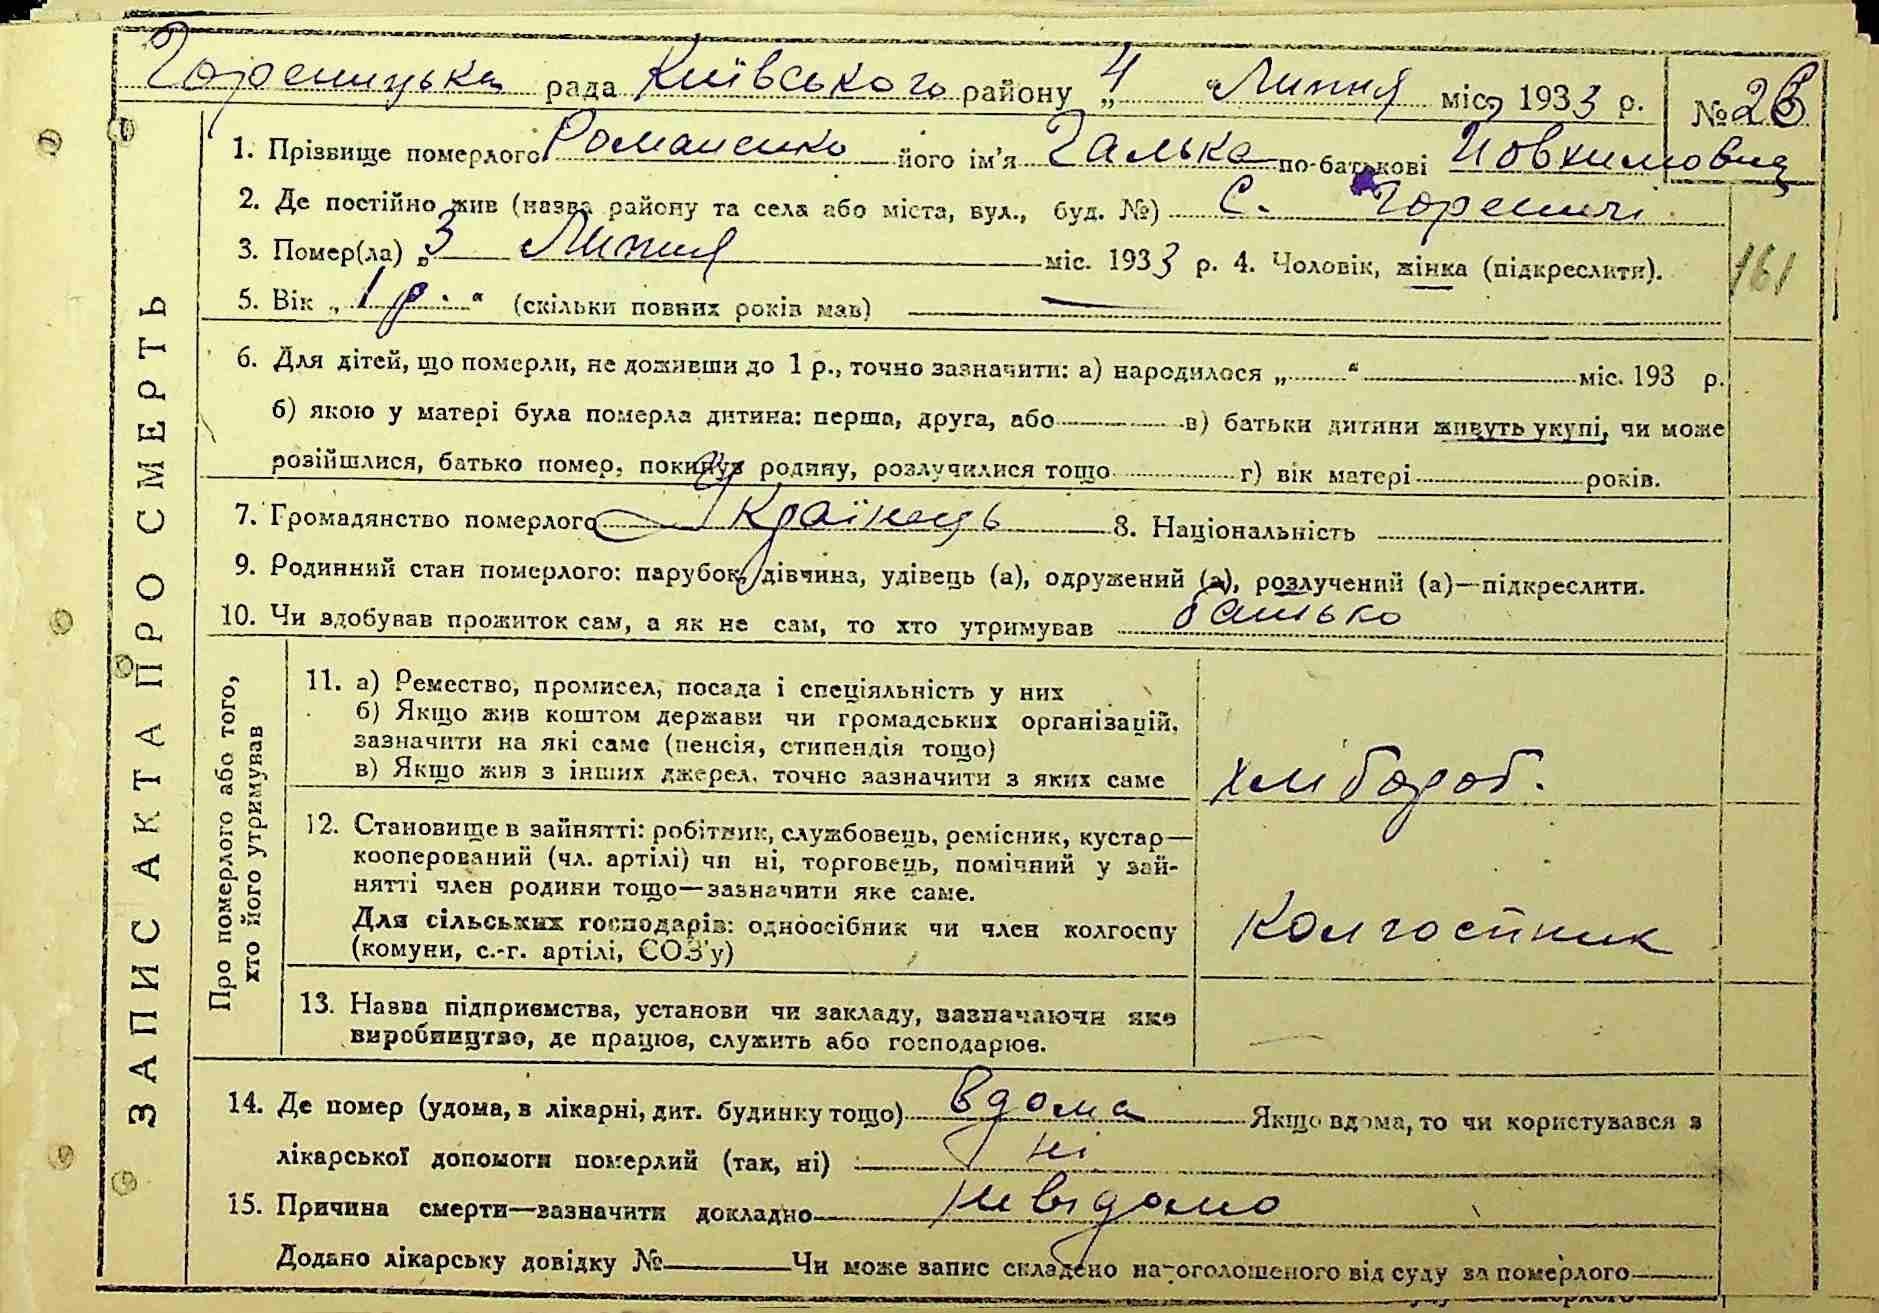 Гореницька рада Київського району „4 Липня міс. 1933 р. № 28
1. Прізвище померлого Романенко його ім'я Галька по-батькові Йовхимовна
2. Де постійно жив (назва району та села або міста, вул., буд. №) С. Гореничі
3. Помер(ла) „3 Липня міс. 1933 р. 4. Чоловік, жінка (підкреслити).
161
5. Вік „1 р.“ (скільки повних років мав)
6. Для дітей, що померли, не доживши до 1 р., точно зазначити: а) народилося „ “ міс. 193 р.
б) якою у матері була померла дитина: перша, друга, або в) батьки дитини живуть укупі, чи може
розійшлися, батько помер, покинув родину, розлучилися тощо г) вік матері років.
7. Громадянство померлого Українець 8. Національність
9. Родинний стан померлого: парубок, дівчина, удівець (а), одружений (а), розлучений (а)—підкреслити.
10. Чи здобував прожиток сам, а як не сам, то хто утримував батько
ЗАПИС АКТА ПРО СМЕРТЬ
Про померлого або того,
хто його утримував
11. а) Ремество, промисел, посада і спеціяльність у них
б) Якщо жив коштом держави чи громадських організацій,
зазначити на які саме (пенсія, стипендія тощо)
в) Якщо жив з інших джерел, точно зазначити з яких саме
хлібороб.
12. Становище в зайнятті: робітник, службовець, ремісник, кустар—
кооперований (чл. артілі) чи ні, торговець, помічний у зай-
нятті член родини тощо—зазначити яке саме.
Для сільських господарів: одноосібник чи член колгоспу
(комуни, с.-г. артілі, СОЗ'у)
Колгоспник
13. Назва підприємства, установи чи закладу, зазначаючи яке
виробництво, де працює, служить або господарює.
14. Де помер (удома, в лікарні, дит. будинку тощо) Вдома Якщо вдома, то чи користувався з
лікарської допомоги померлий (так, ні) ні
15. Причина смерти—зазначити докладно невідомо
Додано лікарську довідку № Чи може запис складено на оголошеного від суду за померлого